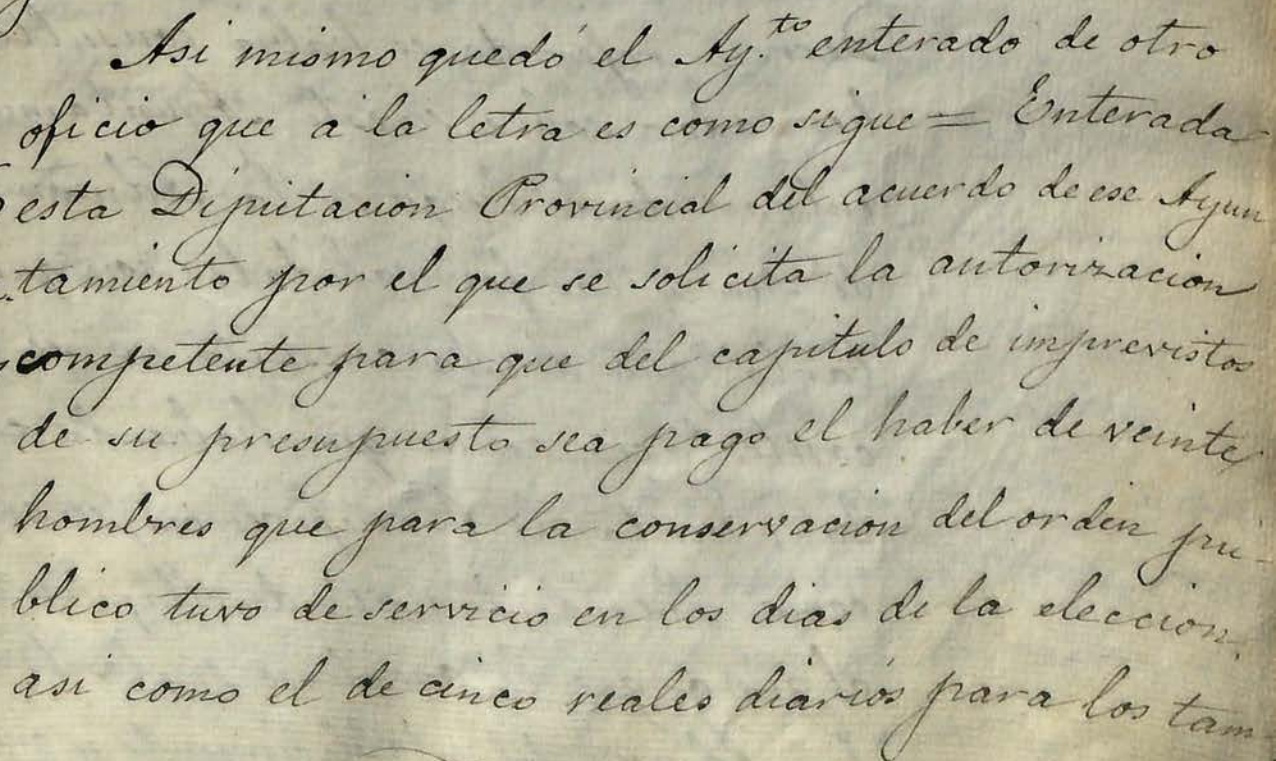 Asi mismo quedó el Ay.to enterado de otro
oficio que a la letra es como sigue = Enterada
esta Diputacion Provincial del acuerdo de ese Ayun
tamiento por el que se solicita la autorizacion
competente para que del capitulo de imprevistos
de su presupuesto sea pago el haber de veinte
hombres que para la conservacion del orden pu-
blico tuvo de servicio en los dias de la eleccion.
asi como el de cinco reales diarios para los tam